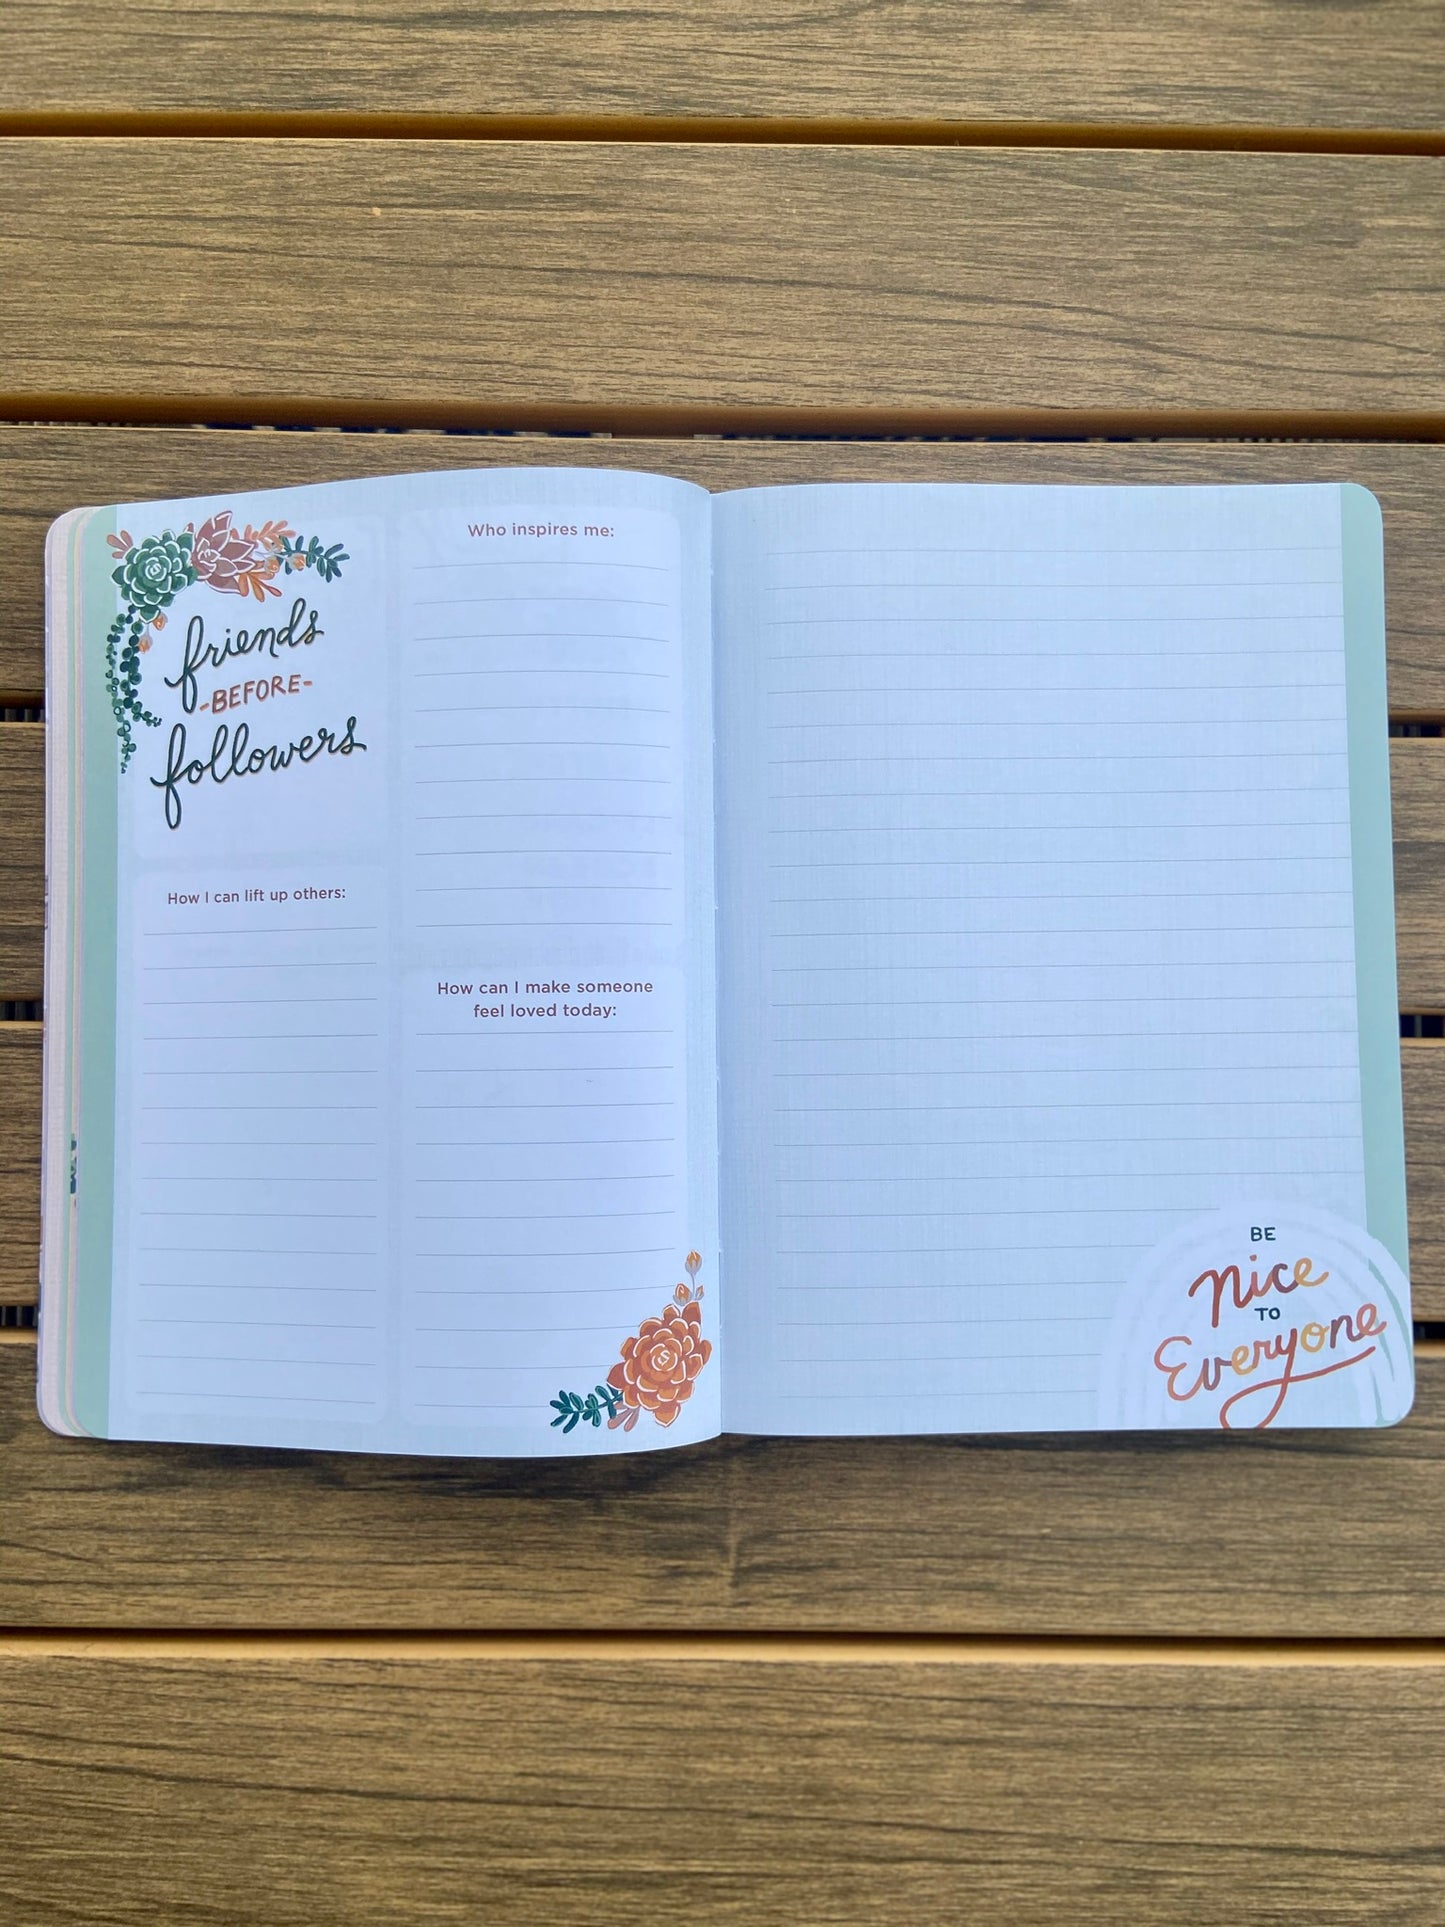 friends
-BEFORE-
followers
How I can lift up others:
Who inspires me:
How can I make someone
feel loved today:
BE
Nice
TO
Everyone